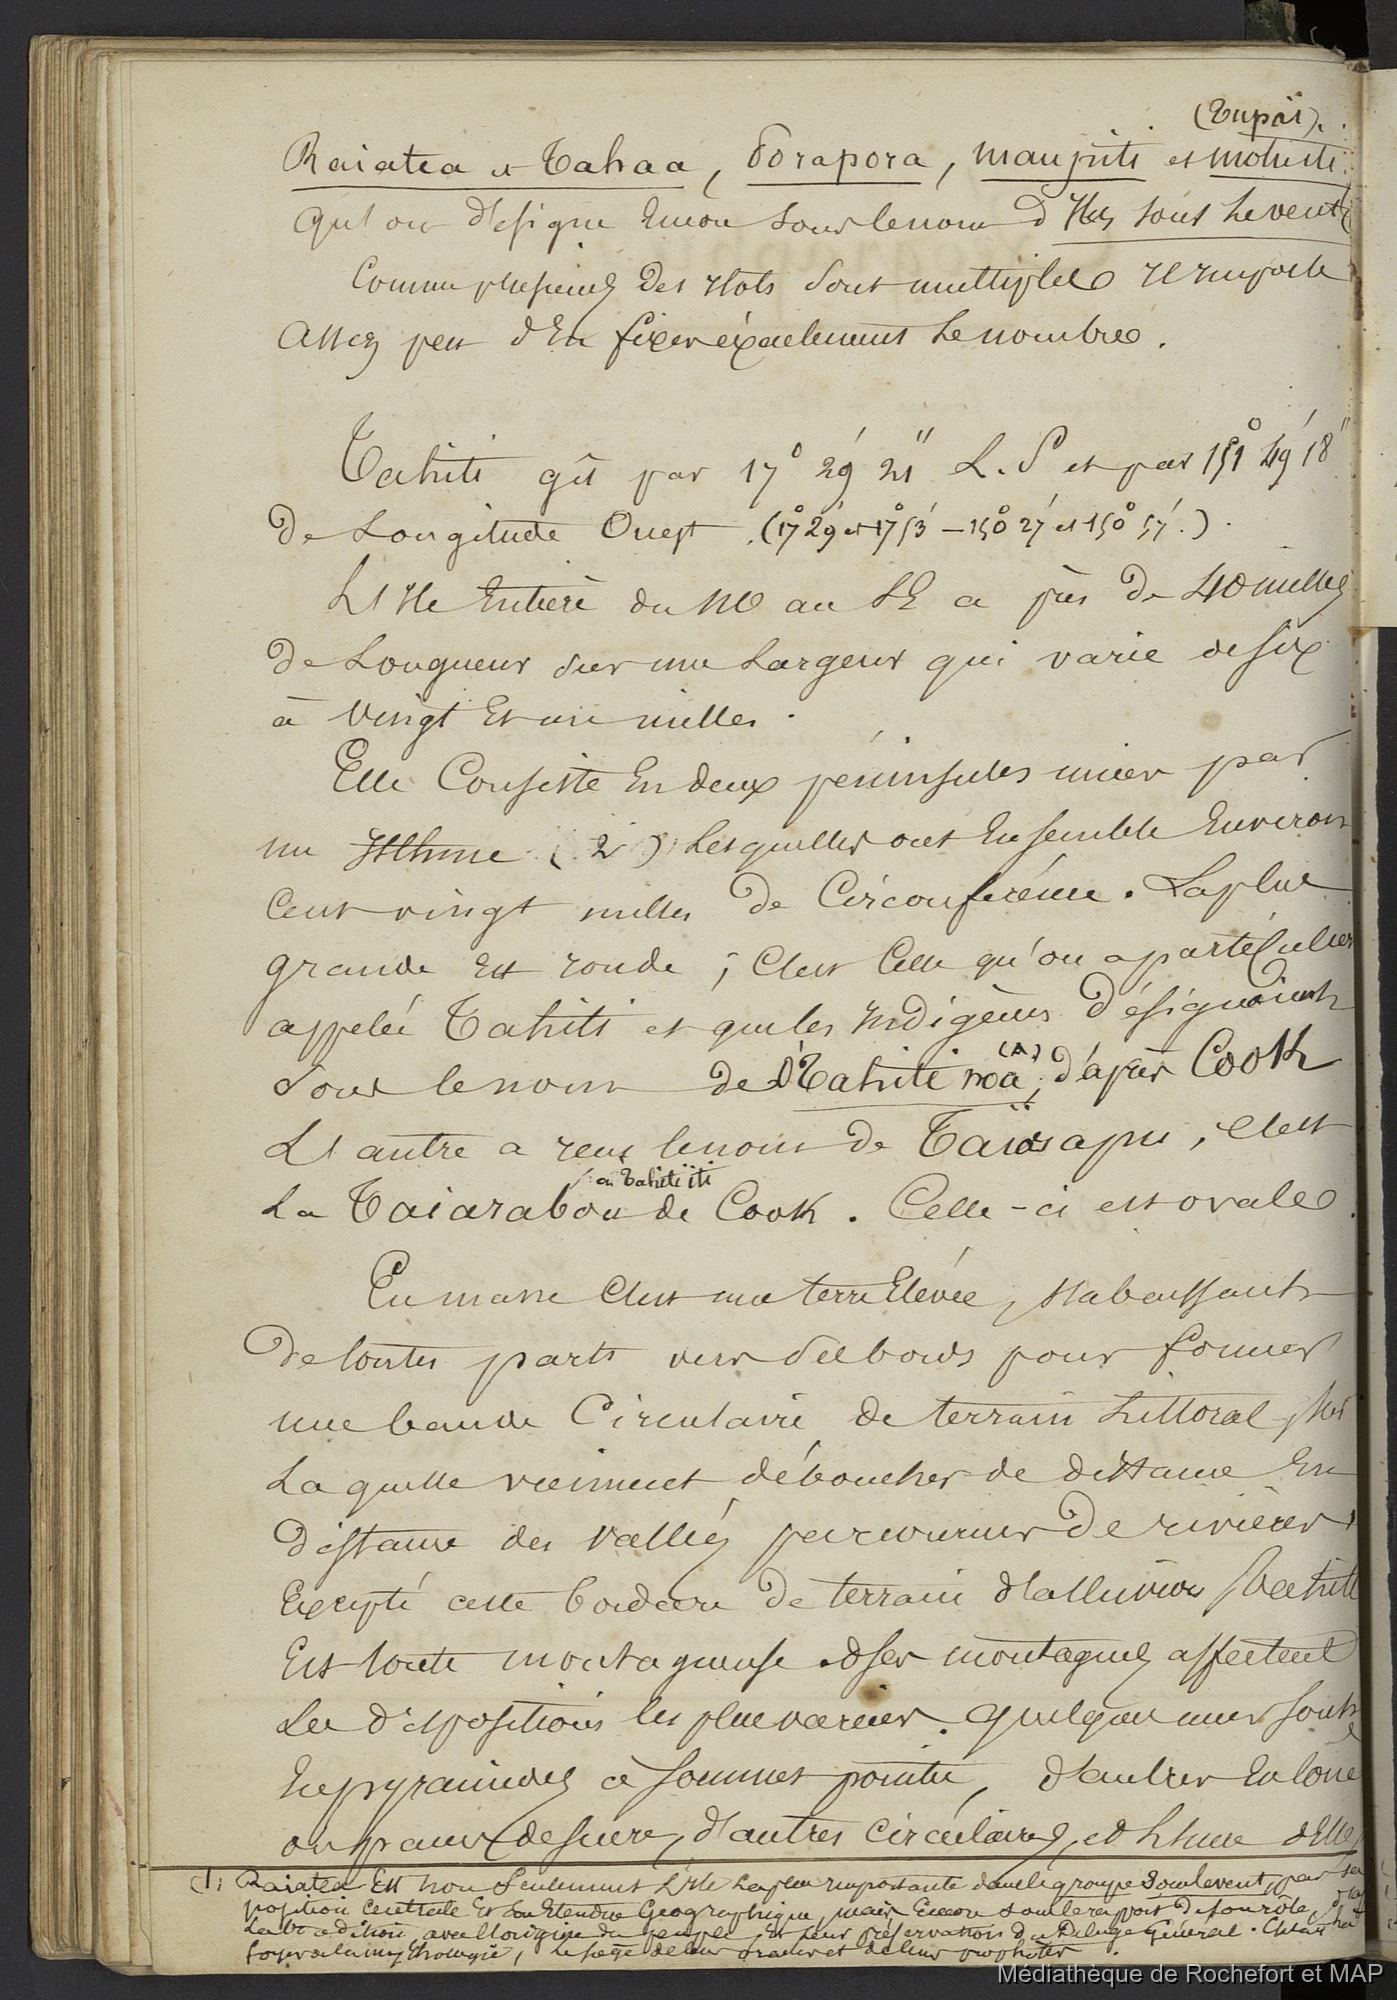 (Tupai).
Raiatea et Tahaa, Borapora, Maupiti et Motuiti
qu'on désigne encore sous le nom d'Iles sous Le vent
Comme plusieurs des Ilots sont multiples il importe
assez peu d'en fixer éxactement Le nombre.
Tahiti gît par 17° 29' 21" L. S et par 151° 49' 18"
De Longitude Ouest (17° 29' et 17° 53' - 150° 27' et 150° 57'.).
L'Ile Entière du NO au SE a près De 40 milles
De Longueur sur une Largeur qui varie de six
à vingt Et un milles.
Elle Consiste En deux péninsules unies par
un Isthme (2) Lesquelles ont Ensemble Environ
Cent vingt milles De Circonférence. La plus
grande Est ronde ; C'est Celle qu'on a particulièr
appelée Tahiti et que les Indigènes Désignaient
sous le nom de O'Tahiti noa (A); d'après Cook
L'autre a reçu le nom de Taïarapu, C'est
ou Tahiti iti
La Taiarabou de Cook. Celle-ci est ovale.
En masse C'est une terre Elevée, s'abaissant
De toutes parts vers ses bords pour former
une bande Circulaire de terrain Littoral, sur
Laquelle viennent déboucher de distance En
distance des vallées parcourues De rivières.
Excepté cette bordure De terrain d'alluvion, Tahiti
Est toute montagneuse. Ses montagnes affectent
Les dispositions les plus variées. Quelques unes sont
En pyramides à sommet pointu, d'autres En Cône
ou pains de sucre, d'autres circulaires, et L'une d'Elles
(1) Raiatea Est non seulement L'Ile La plus importante dans le groupe sous le vent, par sa
position centrale Et son Etendue Géographique, mais Encore sous le rapport de son rôle, d'ap
La tradition, avec L'origine du peuple Et leur préservation du Déluge Général. C'était Le
foyer de la mythologie, Le siège de leur oracle et de leur prophètes.
Médiathèque de Rochefort et MAP